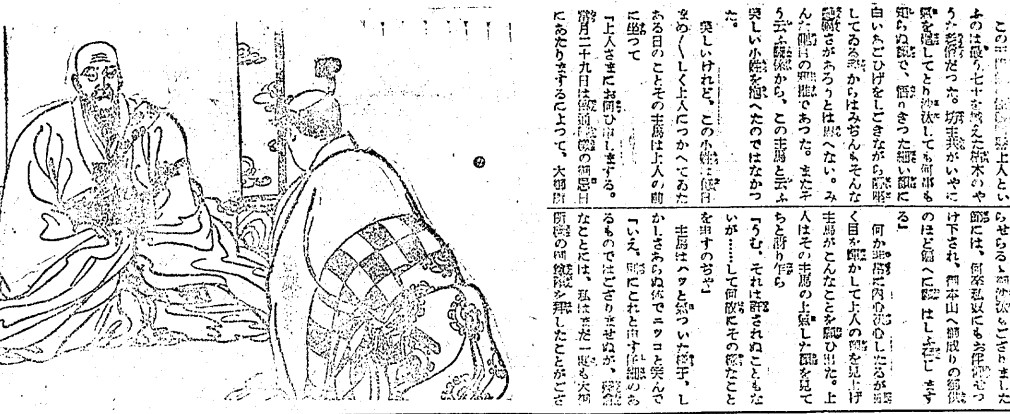 上人とい
ふのは最う七十を越えた枯木のや
うな老僧だつた。坊主共がいやに
氣を廻してとり沙汰しても何事も
知らぬ顔で、悟りきつた細い顔に
白いちごひげをしごきながら
してゐる姿からはみぢんもそんな
さがあらうとは思へない。み
んな傍目の邪推であつた。またそ
う云ふ關係から、この主馬と云ふ
美しい小姓を抱へたのではなかつ
た。
美しいけれど。この小姓は毎日
まめ〱しく上人につかへてゐた
ある日のことその主馬は上人の前
に坐つて
『上人さまにお伺ひ申しまする。
當月二十九日は 御忌日
にあたりまするによつて、大
らせらるゝ御沙汰もござりました
節には、何卒私奴にもお伴仰せつ
け下され、御本山へ御成りの御供
のほど偏へに はしふ存じます
る』
何か 内心決心したるが
く目を輝かして上人の顔を見上げ
主馬がこんなことを願ひ出た。上
人はその主馬の上氣した顔を見て
ちと訝り乍ら
『うむ、それは許されぬこともな
いが……して何故にその樣なこと
を申すのぢや』
主馬はハッと氣づいた樣子、し
かしさあらぬ体でニッコと笑んで
『いえ、別にこれと申す仔細のあ
るものではござりませぬが、
なことには、私はまだ一度も大
所樣の御 を拜したことがござ